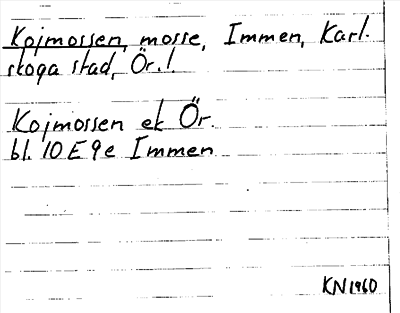 Kojmossen, mosse, Immen, Karl-
skoga stad, Ör.l.
Kojmossen ek Ör.
bl. 10E9e Immen
KN1960